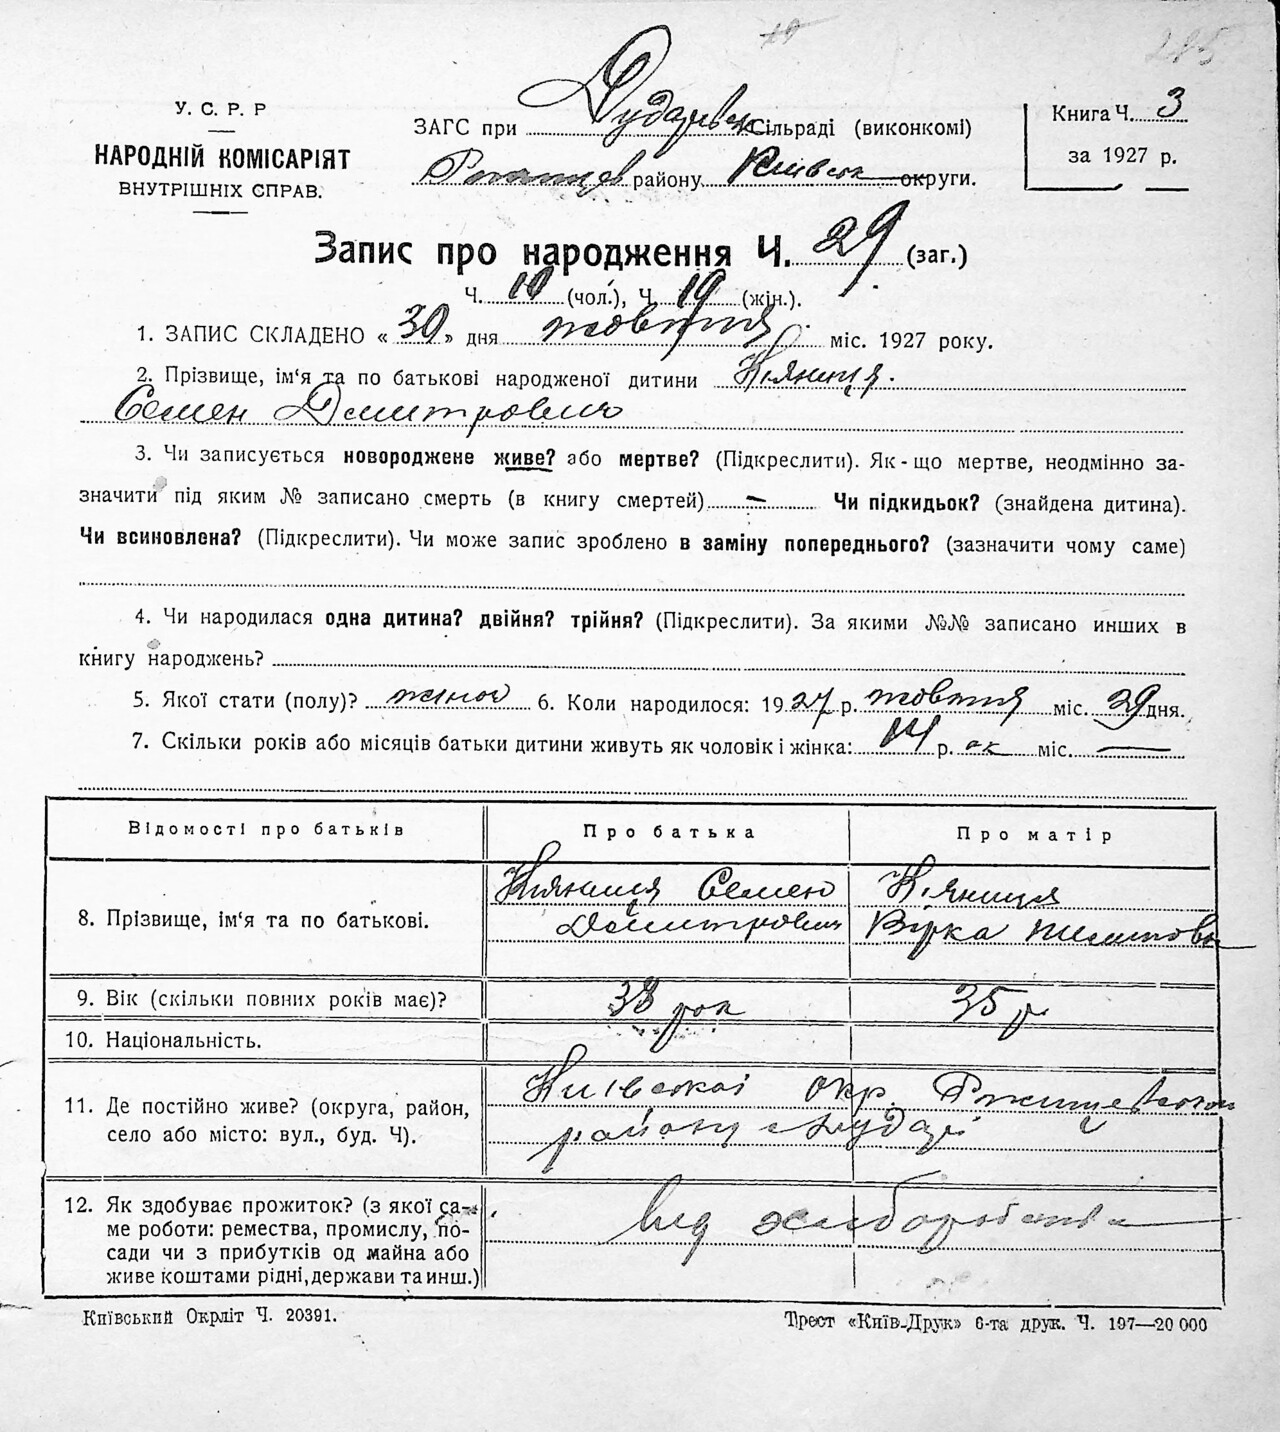 285
У. С. Р. Р
НАРОДНІЙ КОМІСАРІЯТ
ВНУТРІШНІХ СПРАВ.
ЗАГС при Дударівськ Сільраді (виконкомі)
району Київськ округи.
Книга Ч. 3
за 1927 р.
Запис про народження Ч. 29 (заг.)
Ч. 10 (чол.), Ч. 19 (жін.).
1. ЗАПИС СКЛАДЕНО « 30 » дня жовтня міс. 1927 року.
2. Прізвище, ім‘я та по батькові народженої дитини
Семен Дмитрович
3. Чи записується новороджене живе? або мертве? (Підкреслити). Як-що мертве, неодмінно за-
значити під яким № записано смерть (в книгу смертей) — Чи підкидьок? (знайдена дитина).
Чи всиновлена? (Підкреслити). Чи може запис зроблено в заміну попереднього? (зазначити чому саме)
4. Чи народилася одна дитина? двійня? трійня? (Підкреслити). За якими №№ записано инших в
книгу народжень?
5. Якої стати (полу)? жіноч 6. Коли народилося: 1927 р. жовтня міс. 29 дня.
7. Скільки років або місяців батьки дитини живуть як чоловік і жінка: 14 р. ок міс. —
Відомості про батьків
Про батька
Про матір
8. Прізвище, ім‘я та по батькові.
Семен
Дмитрович
9. Вік (скільки повних років має)?
38 рок
35 р
10. Національність.
11. Де постійно живе? (округа, район,
село або місто: вул., буд. Ч).
Київської окр.
району
12. Як здобуває прожиток? (з якої са-
ме роботи: ремества, промислу, по-
сади чи з прибутків од майна або
живе коштами рідні, держави та инш.)
від хліборобства
Київський Окрліт Ч. 20391.
Трест «Київ-Друк» 6-та друк. Ч. 197—20 000